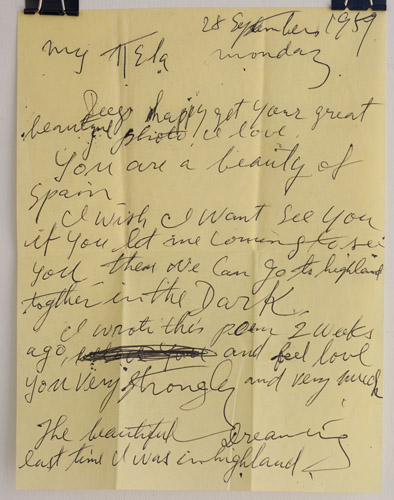 28 September 1959
My Tela monday
Deep happy get your great
beautiful photo I love.
You are a beauty of
Spain
I wish I want see you
if you let me coming to see
you then we can go to highland
togther in the Dark.
I wrote this poem 2 weeks
ago, and feel love
you very strongly and very much
The beautiful Dreaming
last time I was in highland